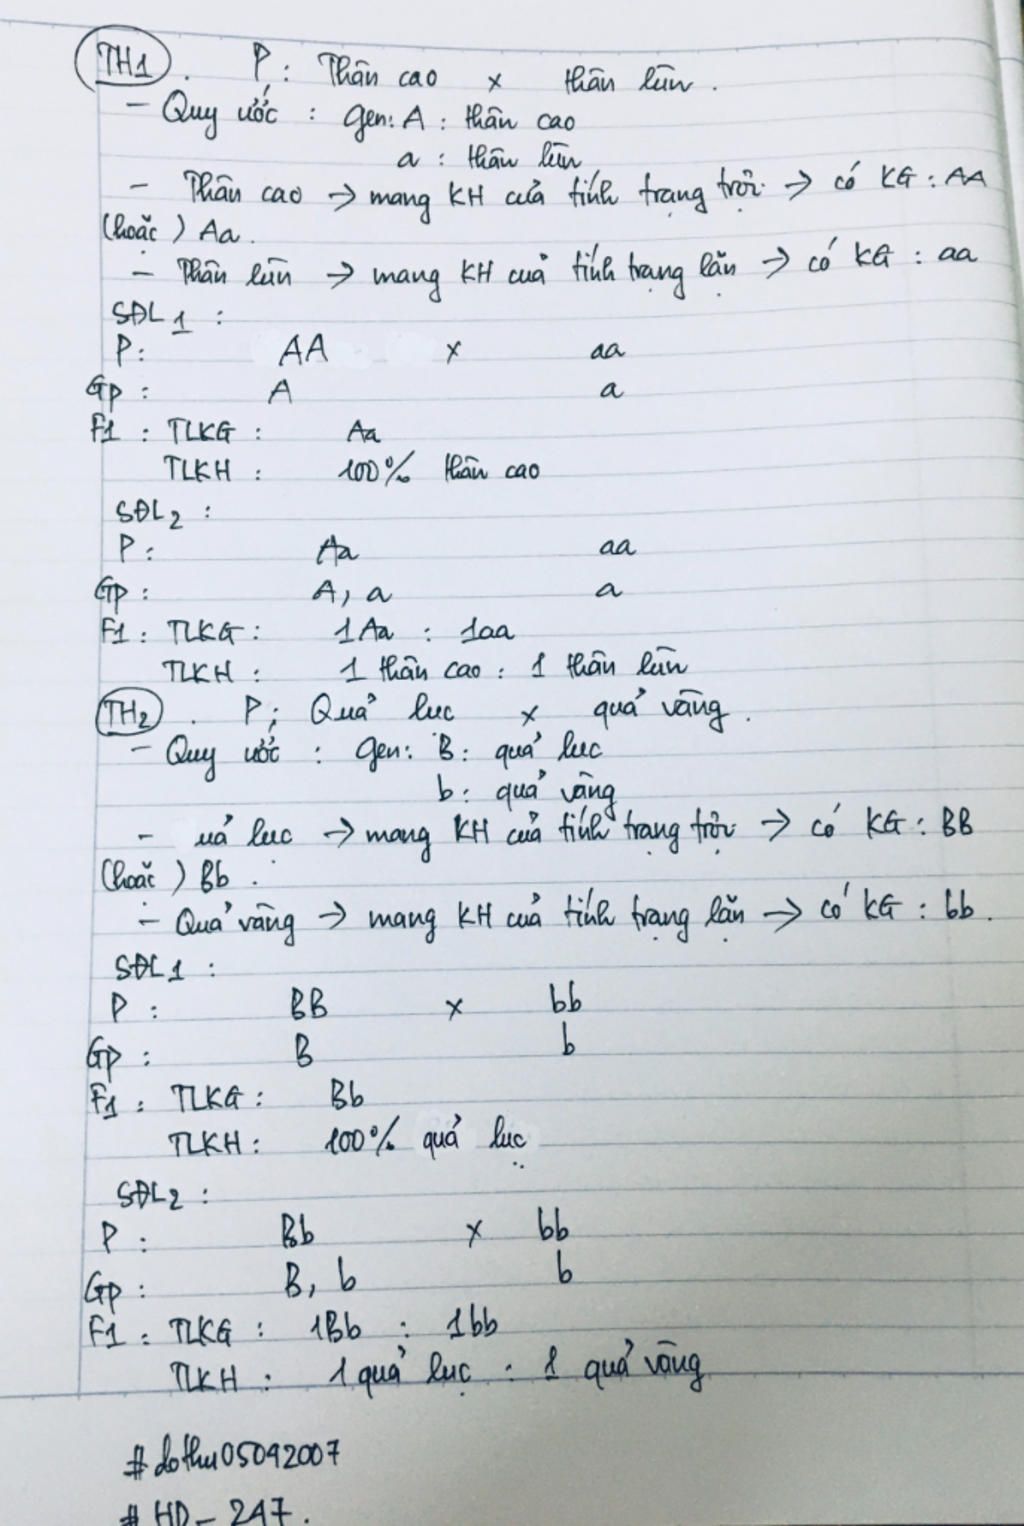 TH1. P: Thân cao x thân lùn.
- Quy ước : gen: A : thân cao
a : thân lùn
- Thân cao → mang KH của tính trạng trội → có KG : AA
(hoặc) Aa.
- Thân lùn → mang KH của tính trạng lặn → có KG : aa
SĐL1 :
P: AA x aa
Gp : A a
F1 : TLKG : Aa
TLKH : 100% thân cao
SĐL2 :
P : Aa aa
Gp : A, a a
F1 : TLKG : 1Aa : 1aa
TLKH : 1 thân cao : 1 thân lùn
TH2. P: Quả lục x quả vàng.
- Quy ước : gen: B: quả lục
b: quả vàng
- uả lục → mang KH của tính trạng trội → có KG : BB
(hoặc) Bb.
- Quả vàng → mang KH của tính trạng lặn → có KG : bb.
SĐL1 :
P : BB x bb
Gp : B b
F1 : TLKG : Bb
TLKH : 100% quả lục
SĐL2 :
P : Bb x bb
Gp : B, b b
F1 : TLKG : 1Bb : 1bb
TLKH : 1 quả lục : 1 quả vàng
#dothu05092007
#HD-247.